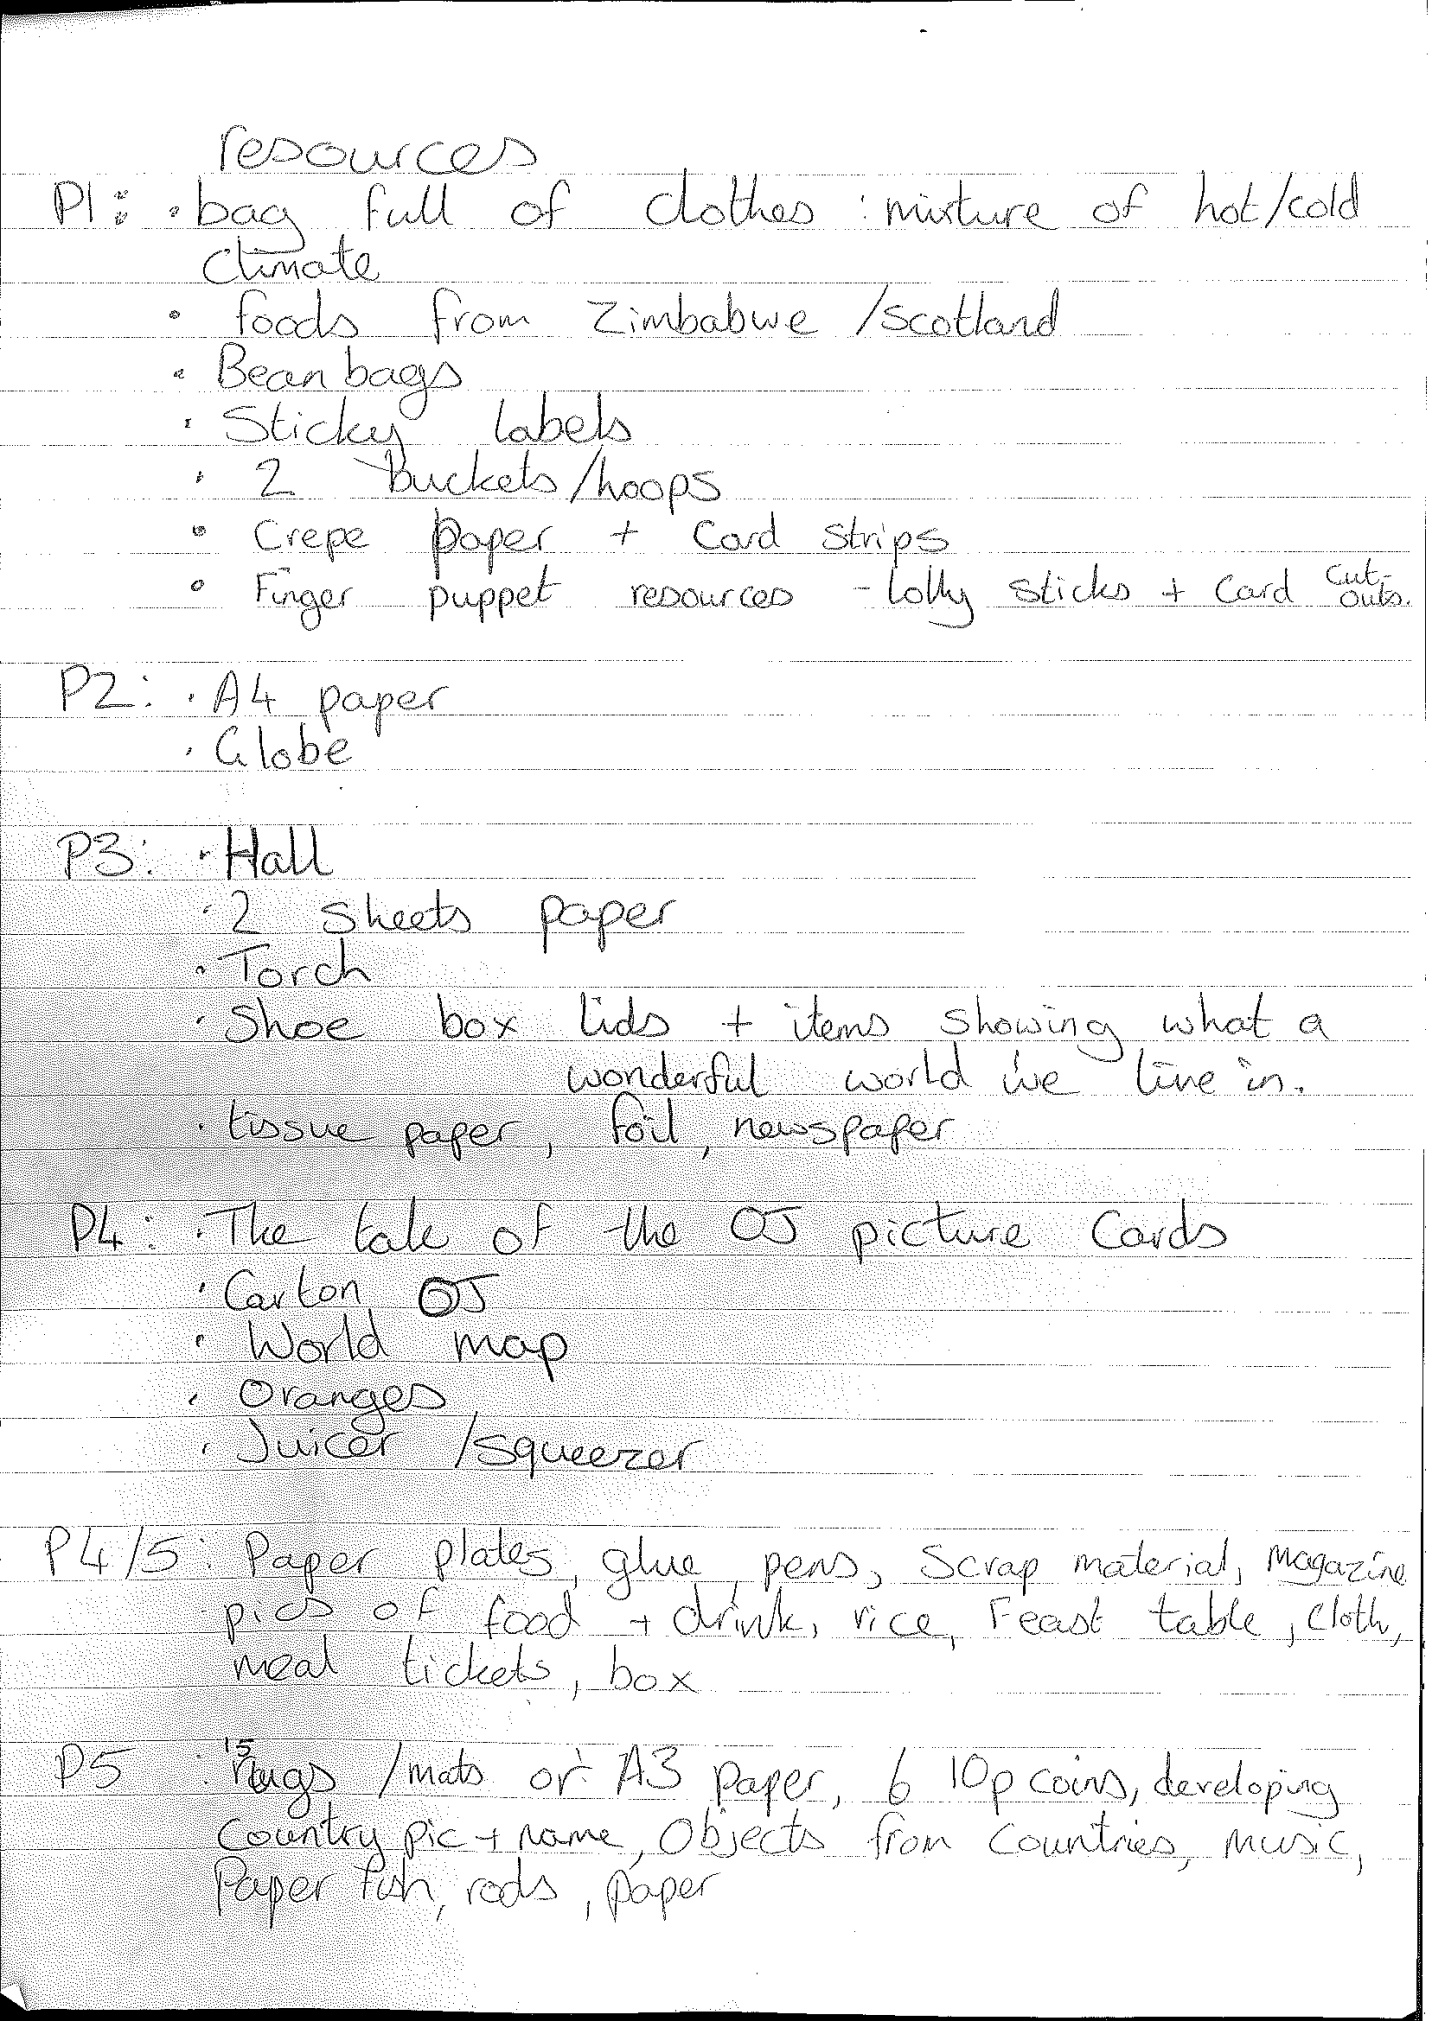 resources
P1: · bag full of clothes : mixture of hot/cold
climate
· foods from Zimbabwe /Scotland
· Bean bags
· Sticky labels
· 2 buckets/hoops
· Crepe paper + Card strips
· Finger puppet resources - lolly sticks + card cut-outs.
P2: · A4 paper
· Globe
P3: · Hall
· 2 sheets paper
· Torch
· Shoe box lids + items showing what a
wonderful world we live in.
· tissue paper, foil, newspaper
P4: · The tale of the OJ picture Cards
· Carton OJ
· World map
· Oranges
· Juicer /squeezer
P4/5: Paper plates, glue, pens, Scrap material, Magazine
pics of food + drink, rice, Feast table, cloth,
meal tickets, box
P5 : 15 rugs /mats or A3 paper, 6 10p coins, developing
Country pic + name, Objects from Countries, music,
Paper fish, rods, paper